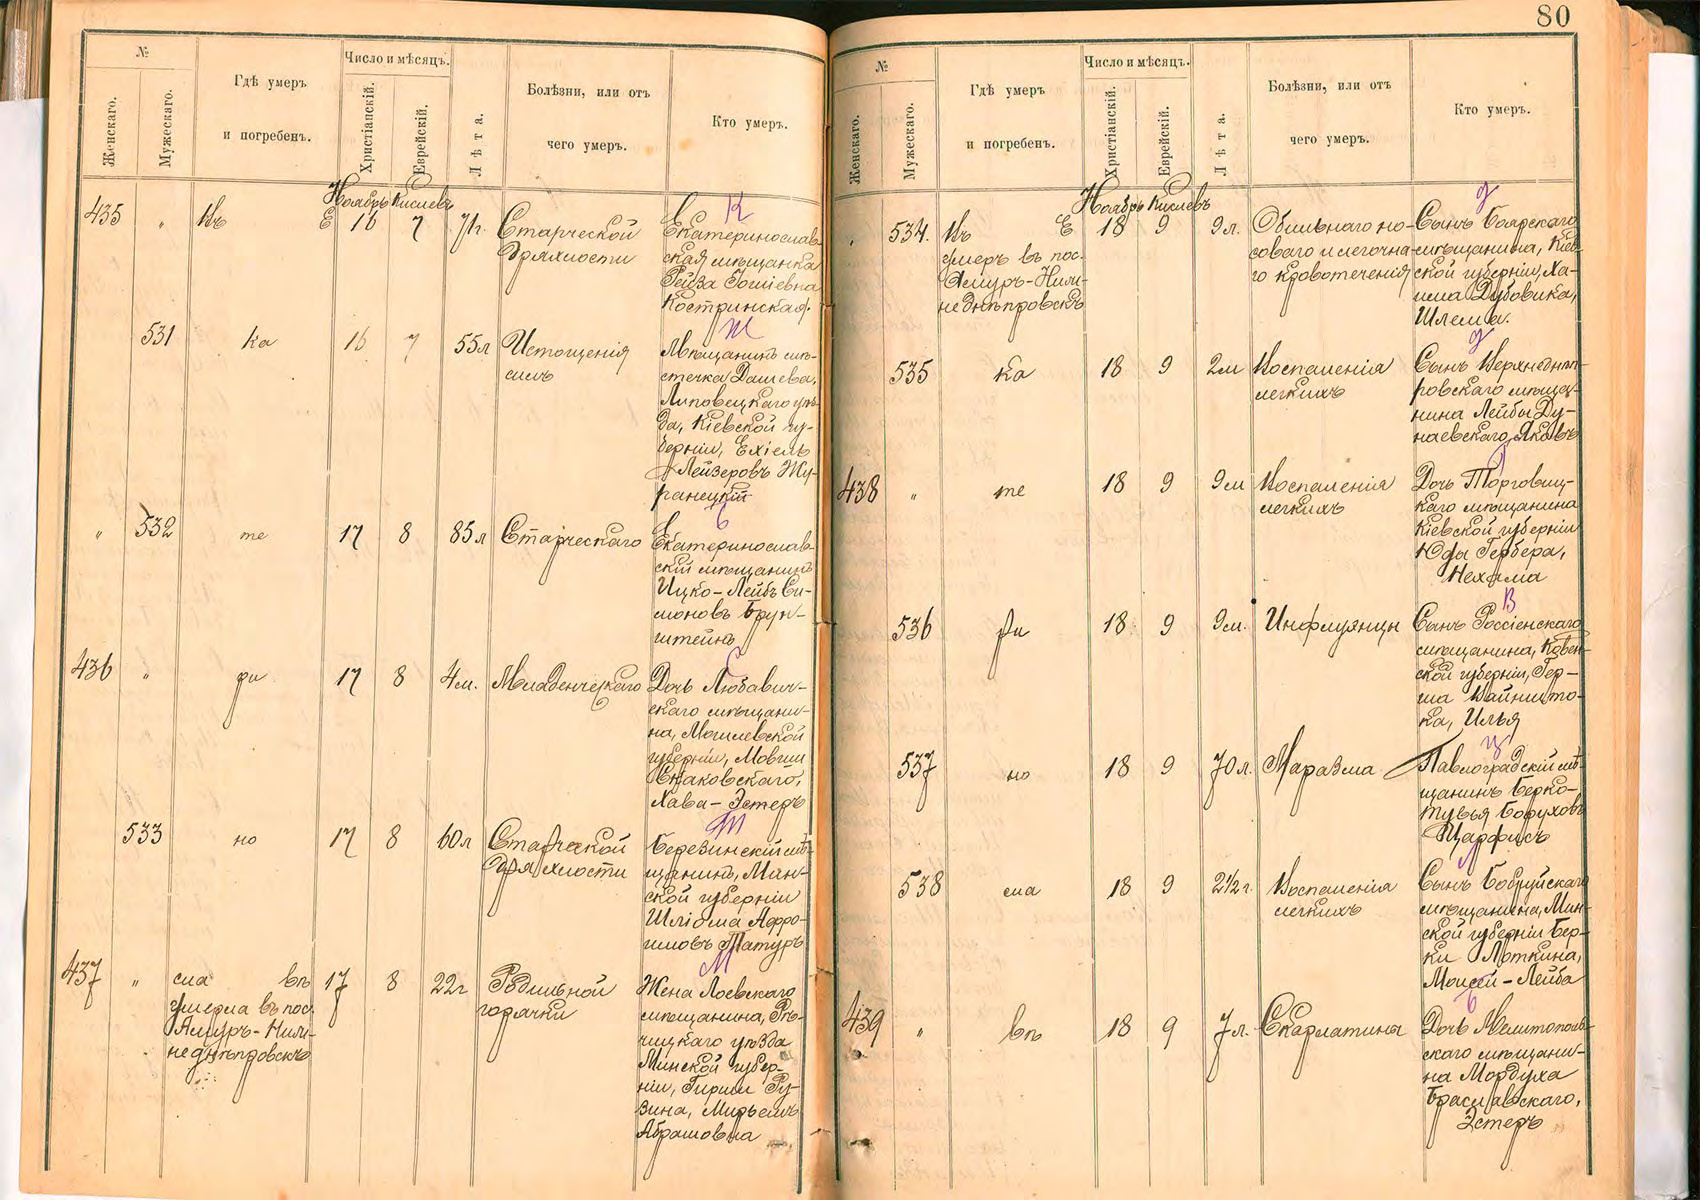 80
№
Женскаго.
Мужескаго.
Гдѣ умеръ
и погребенъ.
Число и мѣсяцъ.
Христіанскій.
Еврейскій.
Лѣта.
Болѣзни, или отъ
чего умеръ.
Кто умеръ.
Ноябрь Кислевъ
К
435 „ Въ Е 16 7 71г.
Старческой
дряхлости
Екатеринослав-
ская мѣщанка
Рейза
Костринская.
Ж
531 ка 16 7 55л
Истощенія
силъ
Мѣщанинъ мѣ-
стечка Дашева,
Липовецкаго уѣз-
да, Кіевской гу-
берніи, Ехіель
Лейзеровъ Жу-
ранецкій
Б
„ 532 те 17 8 85л
Старческаго
Екатеринослав-
скій мѣщанинъ
Ицко-Лейбъ Си-
моновъ Брун-
штейнъ
С
436 „ ри 17 8 4м.
Младенческаго
Дочь Любавич-
скаго мѣщани-
на, Могилевской
губерніи, Мовши
Хава-Эстеръ
533 но 17 8 60л
Старческой
дряхлости
Березинскій мѣ-
щанинъ, Мин-
ской губерніи
Шліома Афро-
имовъ
437 „ сла вѣ 17 8 22г
умерла въ пос.
Амуръ-Ниж-
неднѣпровскъ
Родильной
горячки
Жена Лоевскаго
мѣщанина, Рѣ-
чицкаго уѣзда
Минской губер-
ніи, Гирши Ру-
зина, Мирьемъ
Абрамовна
№
Женскаго.
Мужескаго.
Гдѣ умеръ
и погребенъ.
Число и мѣсяцъ.
Христіанскій.
Еврейскій.
Лѣта.
Болѣзни, или отъ
чего умеръ.
Кто умеръ.
Ноябрь Кислевъ
Д
„ 534. Въ Е 18 9 9л.
умеръ въ пос.
Амуръ-Ниж-
неднѣпровскъ
Обильнаго но-
соваго и легочна-
го кровотеченія
Сынъ Боярскаго
мѣщанина, Кіев-
ской губерніи, Ха-
има Дубовика,
Шлема.
Д
535 ка 18 9 2м
Воспаленія
легкихъ
Сынъ Верхнеднѣп-
ровскаго мѣща-
нина Лейбы Ду-
наевскаго, Яковъ
Г
438 „ те 18 9 9м
Воспаленія
легкихъ
Дочь Торговиц-
каго мѣщанина
Кіевской губерніи
Юды Гербера,
Нехама
В
536 ри 18 9 9м.
Инфлуэнцы
Сынъ Россіенскаго
мѣщанина, Ковен-
ской губерніи, Гер-
ша Вайншто-
ка, Илья
Ц
537 но 18 9 70л.
Маразма
Павлоградскій мѣ-
щанинъ Берко-
Тувья Боруховъ
Царфисъ
538 сла 18 9 2½г.
Воспаленія
легкихъ
Сынъ Бобруйскаго
мѣщанина, Мин-
ской губерніи Бер-
ки Лоткина,
Моисей-Лейба
Б
439 „ вѣ 18 9 7л.
Скарлатина
Дочь Мелитополь-
скаго мѣщани-
на Мордуха
Браславскаго,
Эстеръ